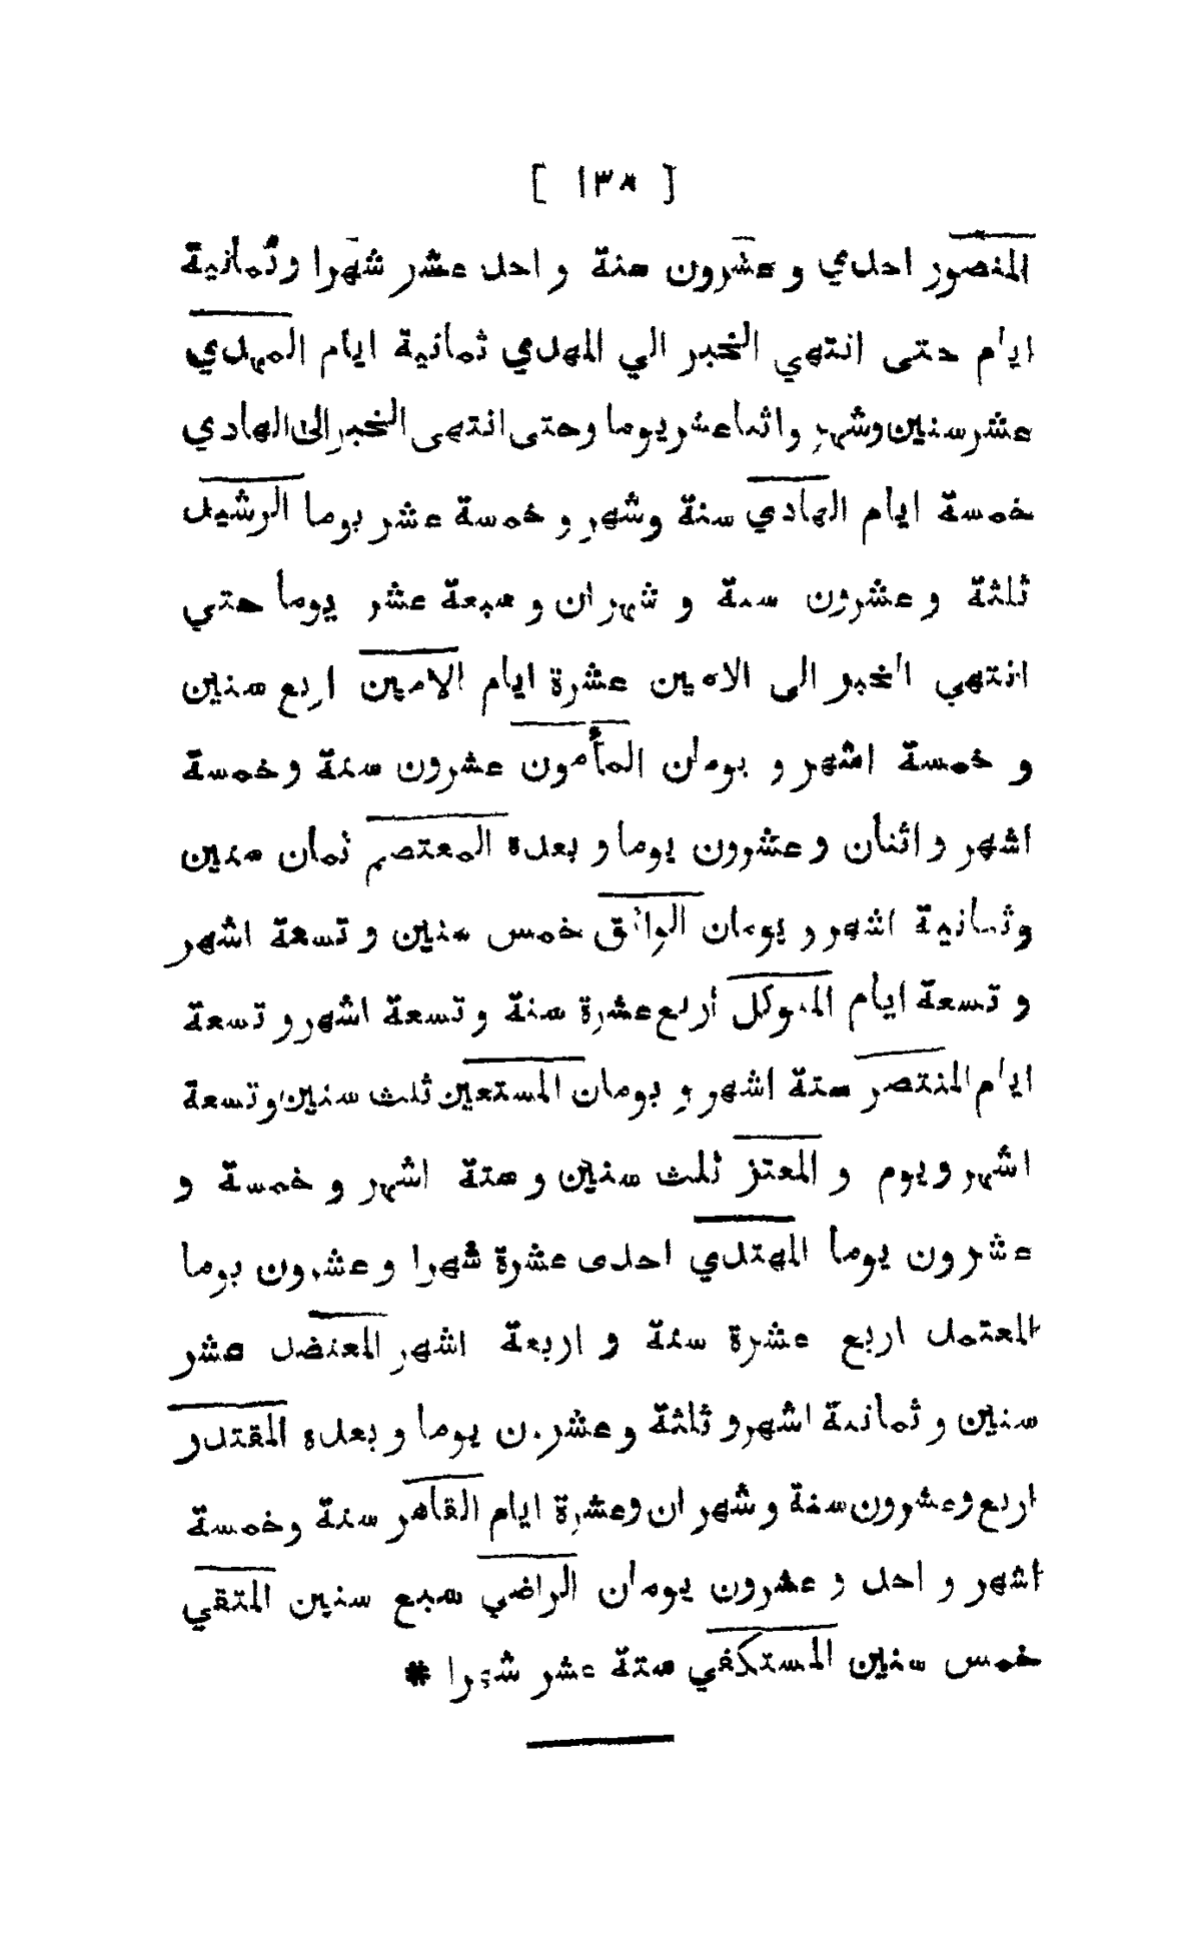 [ ١٣٨ ]
المنصور احدي و عشرون سنة و احد عشر شهرا وثمانية
ايام حتى انتهي الخبر الي المهدي ثمانية ايام المهدي
عشرسنين وشهر واثناعشريوما وحتى انتهى الخبرالى الهادي
خمسة ايام الهادي سنة وشهر و خمسة عشر يوما الرشيد
ثلثة و عشرون سنة و شهران و سبعة عشر يوما حتي
انتهي الخبر الى الامين عشرة ايام الامين اربع سنين
و خمسة اشهر و يومان المأمون عشرون سنة وخمسة
اشهر و اثنان و عشرون يوما و بعده المعتصم ثمان سنين
وثمانية اشهر و يومان الواثق خمس سنين و تسعة اشهر
و تسعة ايام المتوكل اربع عشرة سنة و تسعة اشهر و تسعة
ايام المنتصر ستة اشهر و يومان المستعين ثلث سنين وتسعة
اشهر و يوم و المعتز ثلث سنين و ستة اشهر و خمسة و
عشرون يوما المهتدي احدى عشرة شهرا وعشرون يوما
المعتمد اربع عشرة سنة و اربعة اشهر المعتضد عشر
سنين و ثمانية اشهر و ثلثة و عشرون يوما و بعده المقتدر
اربع وعشرون سنة و شهران وعشرة ايام القاهر سنة وخمسة
اشهر و احد و عشرون يومان الراضي سبع سنين المتقي
خمس سنين المستكفي ستة عشر شهرا *